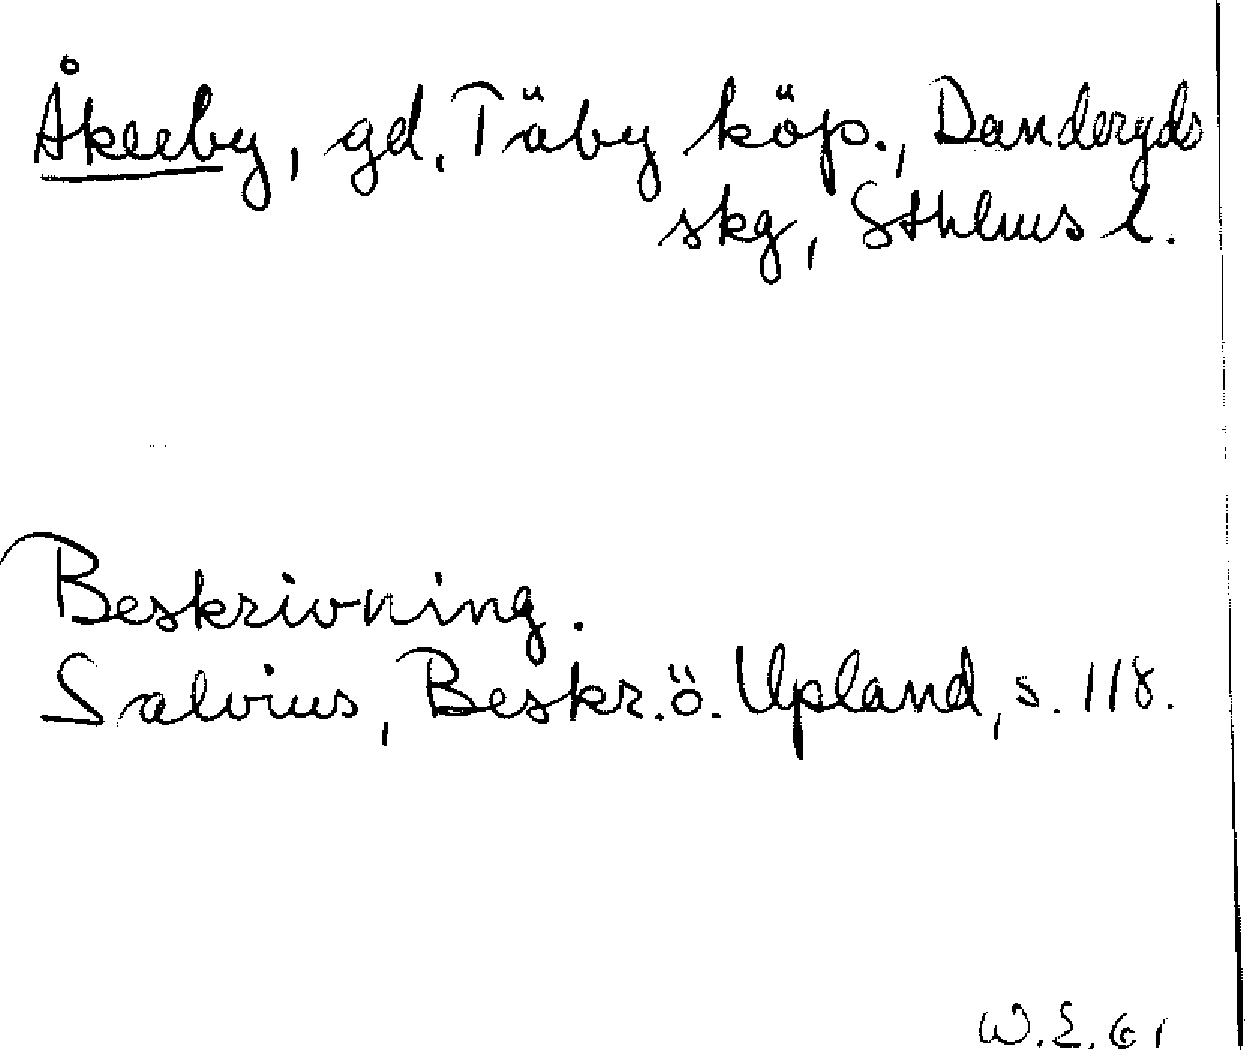 Åkerby, gd, Täby köp., Danderyds
skg, Sthlms l.
Beskrivning.
Salvius, Beskr. ö. Upland, s. 118.
W.E. 61